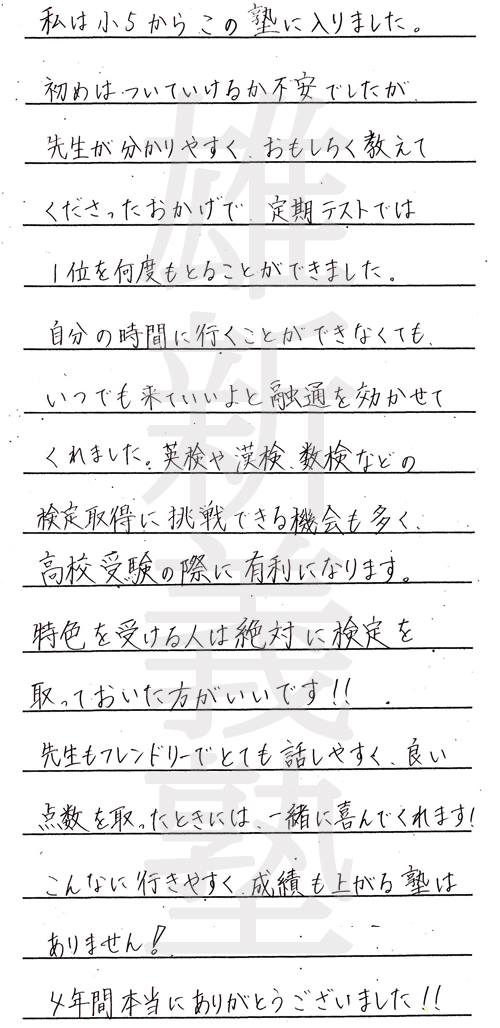 私は小5からこの塾に入りました。
初めはついていけるか不安でしたが、
先生が分かりやすく、おもしろく教えて
くださったおかげで、定期テストでは
1位を何度もとることができました。
自分の時間に行くことができなくても、
いつでも来ていいよと融通を効かせて
くれました。英検や漢検、数検などの
検定取得に挑戦できる機会も多く、
高校受験の際に有利になります。
特色を受ける人は絶対に検定を
取っておいた方がいいです!!
先生もフレンドリーでとても話しやすく、良い
点数を取ったときには、一緒に喜んでくれます!
こんなに行きやすく、成績も上がる塾は
ありません!
4年間本当にありがとうございました!!
雄新義塾